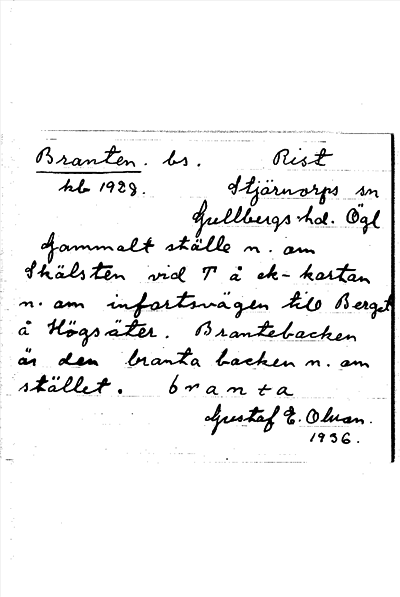 Branten. bs. Rist
kb 1928. Stjärnorps sn
Gullbergs hd. Ögl
Gammalt ställe n. om
Skälsten vid T å ek-kartan
n. om infartsvägen till Berget
å Högsäter. Brantebacken
är den branta backen n. om
stället. branta
Gustaf E. Olsson.
1936.